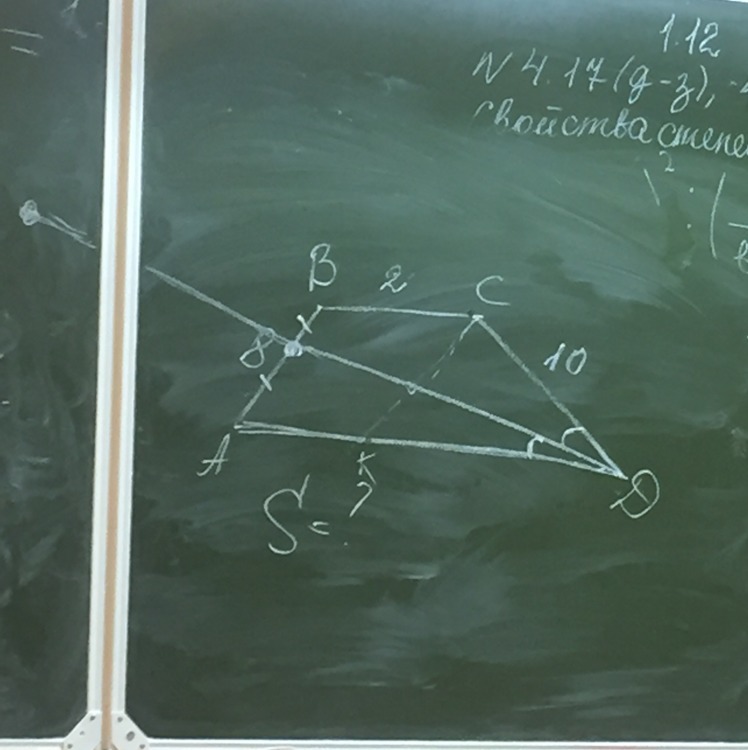 1.12
N 4.17(g-з),
Свойства степе
2
B 2 C
8
10
A
K
D
S = ?